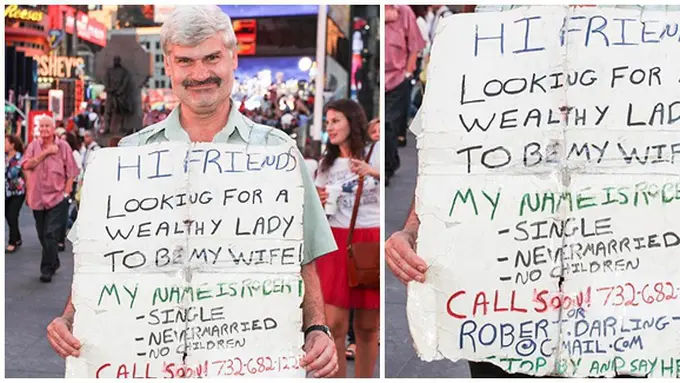 Reese's
HERSHEY'S
HI FRIENDS
LOOKING FOR A
WEALTHY LADY
TO BE MY WIFE!
MY NAME IS ROBERT
- SINGLE
- NEVER MARRIED
- NO CHILDREN
CALL SOON! 732-682-
HI FRIEN
LOOKING FOR A
WEALTHY LADY
TO BE MY WIF
MY NAME IS ROBER
- SINGLE
- NEVER MARRIED
- NO CHILDREN
CALL SOON! 732-682-
OR
ROBERT.DARLING-
@GMAIL.COM
STOP BY AND SAY HE